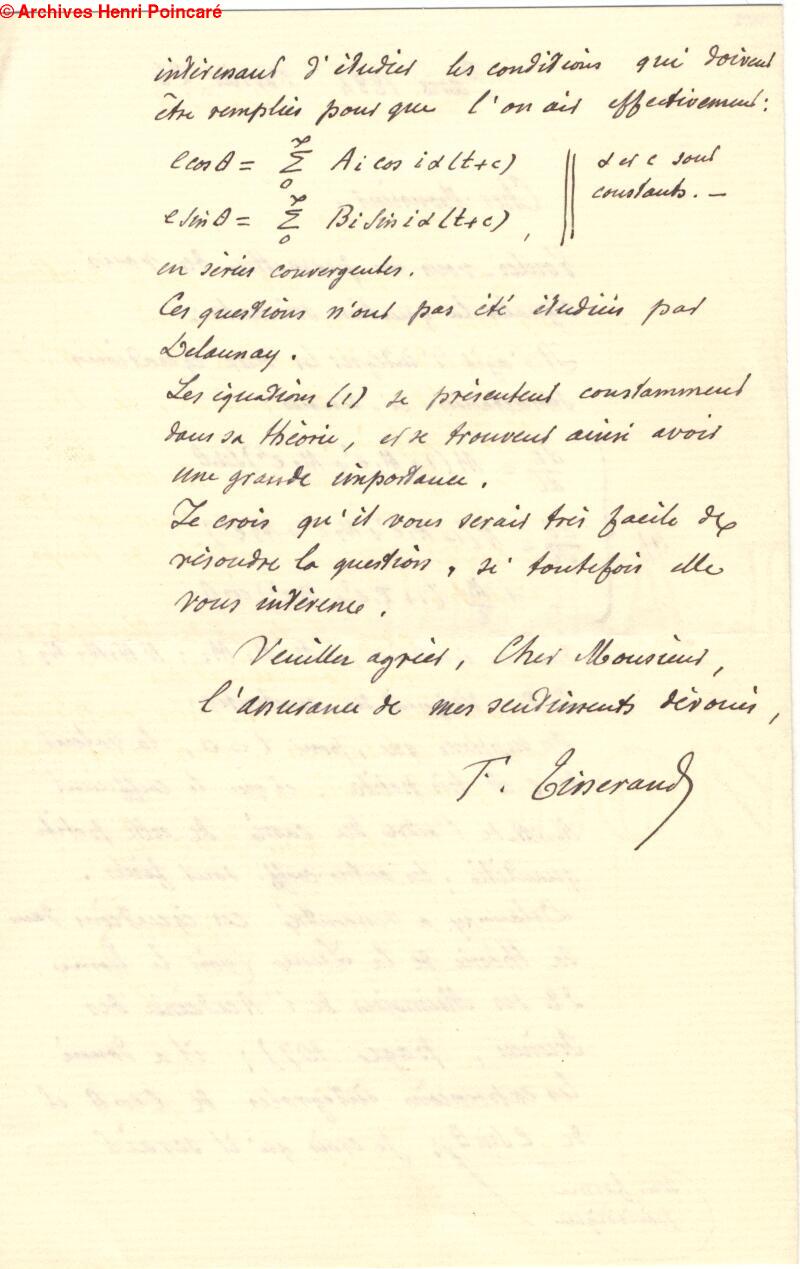 © Archives Henri Poincaré
intéressant d'étudier les conditions qui doivent
être remplies pour que l'on ait effectivement:
e cos θ = ∑₀^∞ Ai cos iα(t+c) || α et c sont
constants. —
e sin θ = ∑₀^∞ Bi sin iα(t+c),
en séries convergentes.
Ces questions n'ont pas été étudiées par
Delaunay.
Les équations (1) se présentent constamment
dans sa théorie, et se trouvent ainsi avoir
une grande importance.
Je crois qu'il vous serait très facile de
résoudre la question, si toutefois elle
vous intéresse.
Veuillez agréer, Cher Monsieur,
l'assurance de mes sentiments dévoués,
F. Tisserand